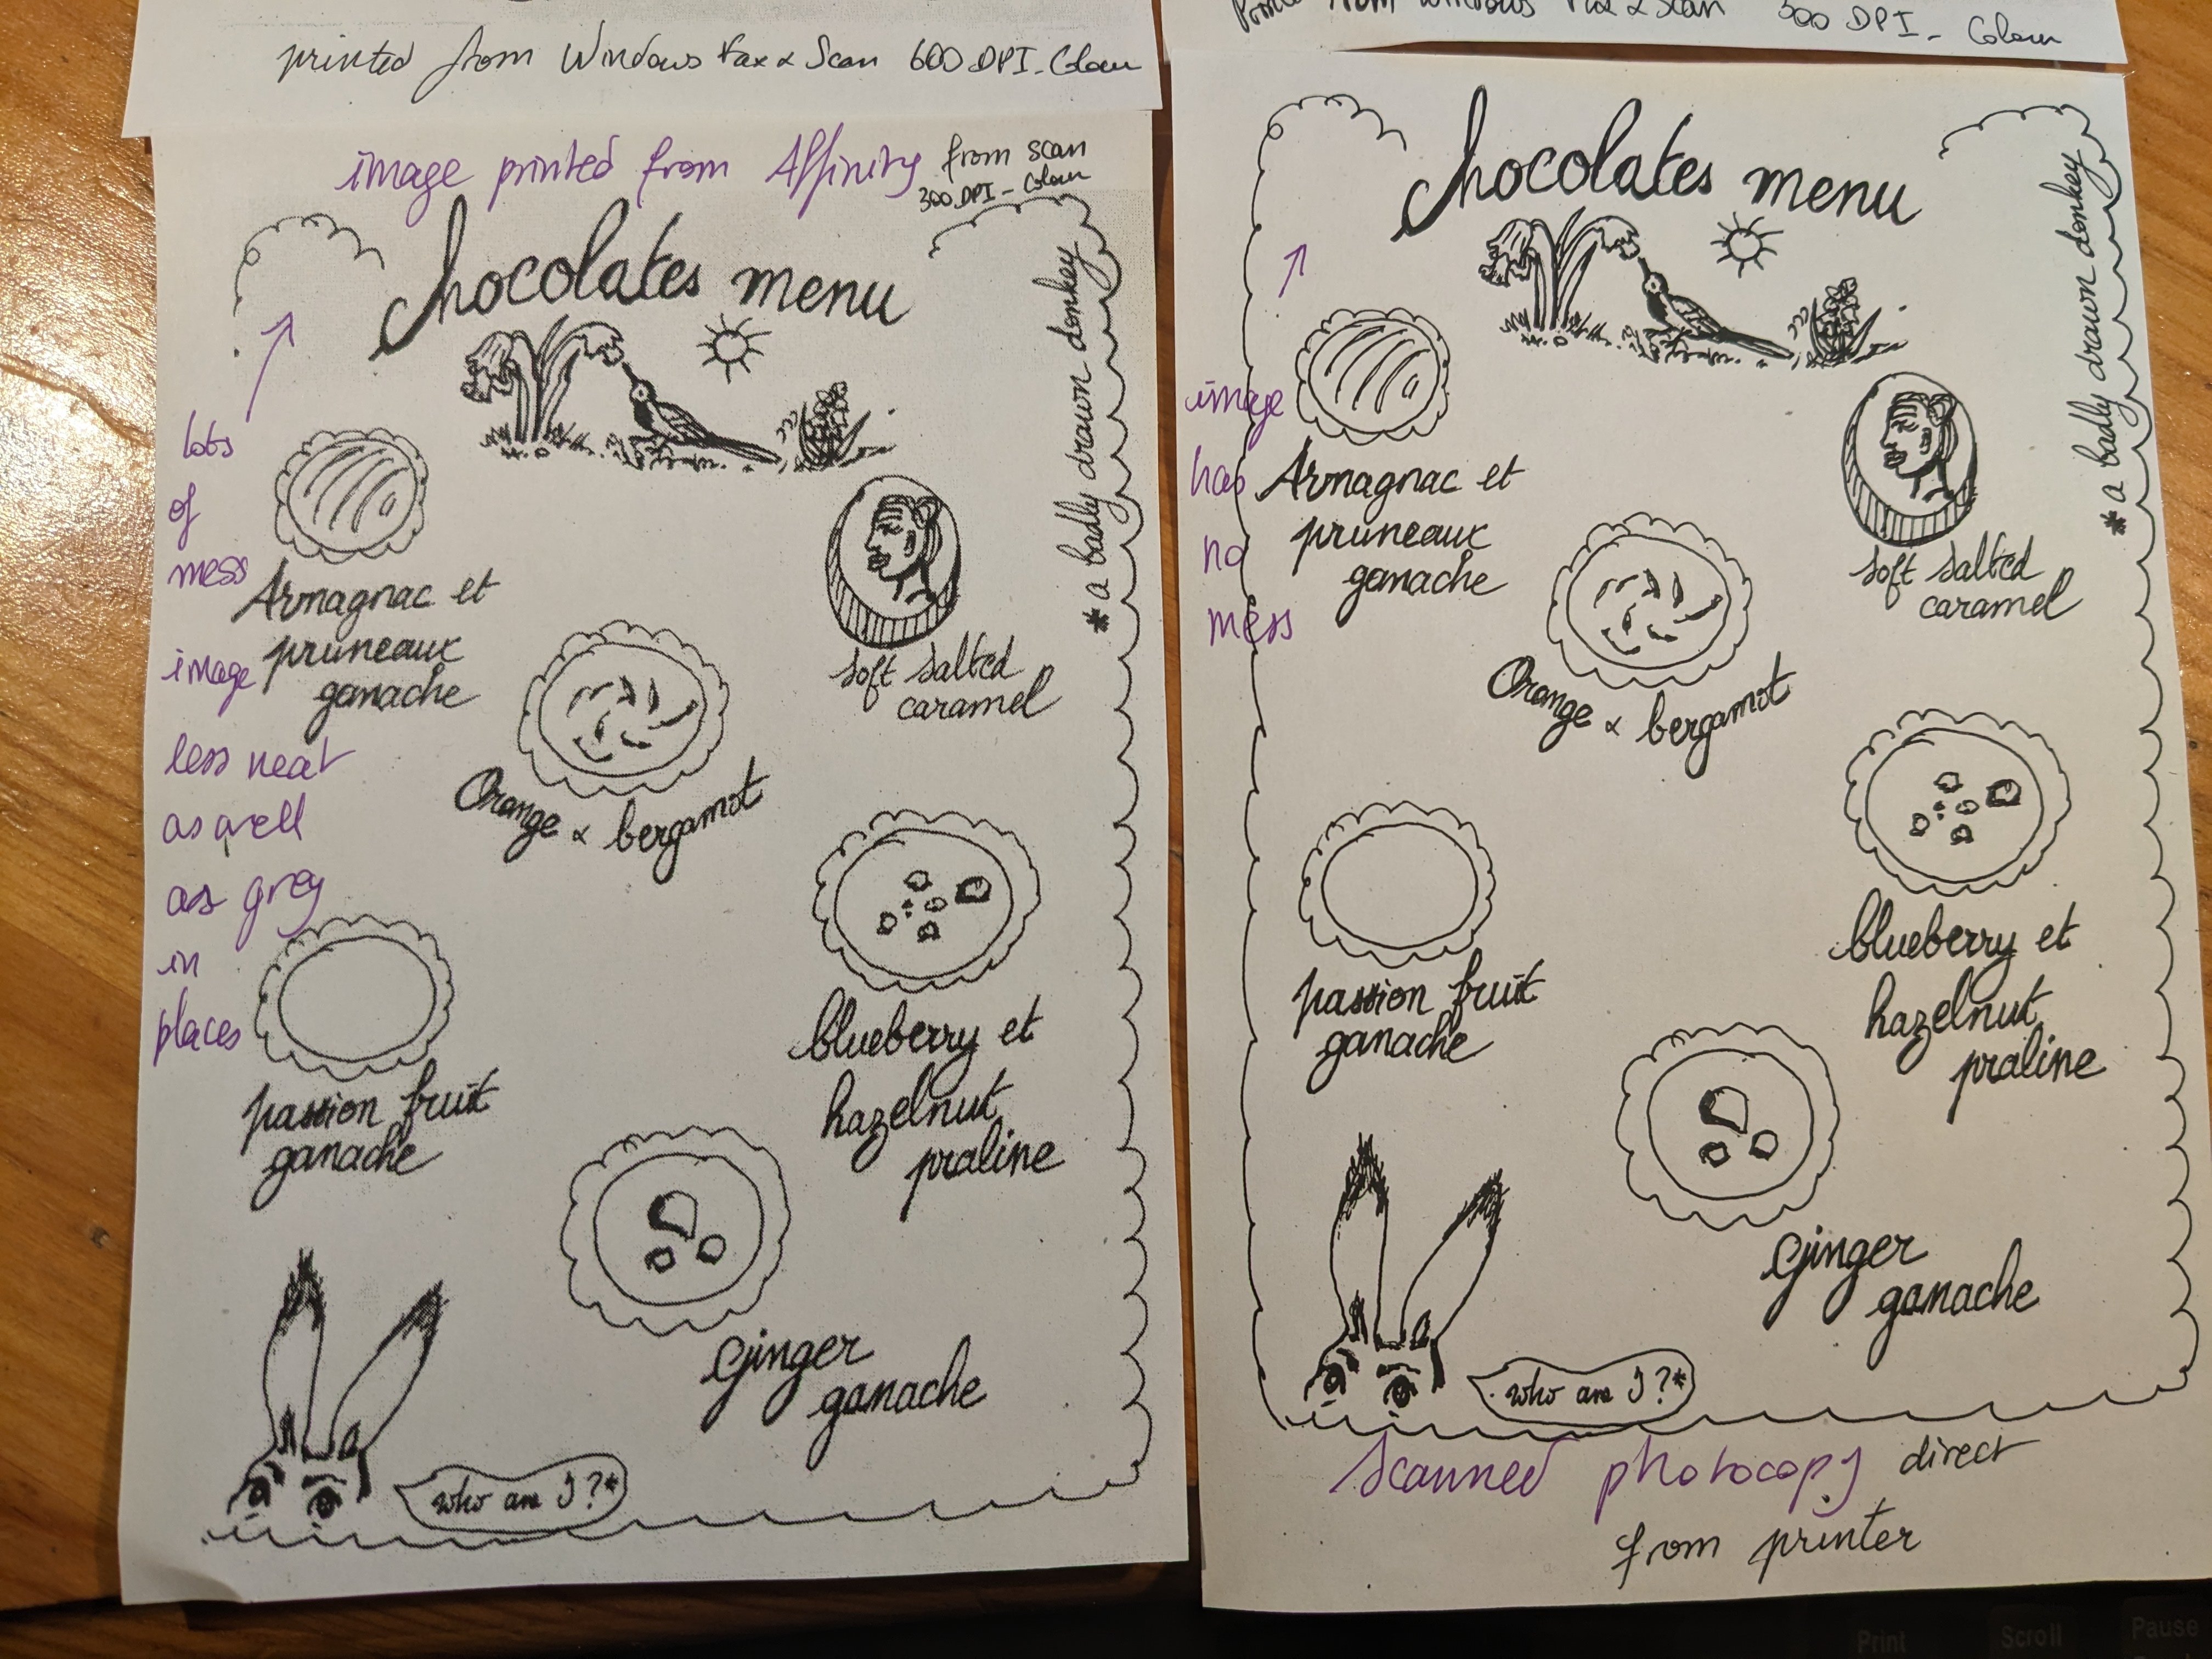 printed from Windows Fax & Scan 600 DPI - Colour
image printed from Affinity from scan
300 DPI - Colour
Chocolates menu
* a badly drawn donkey
lots
of
mess
image
less neat
as well
as grey
in
places
Armagnac et
pruneaux
ganache
soft salted
caramel
Orange & bergamot
blueberry et
hazelnut
praline
passion fruit
ganache
Ginger
ganache
who are I ?*
from Windows Fax & Scan 300 DPI - Colour
Chocolates menu
* a badly drawn donkey
image
has
no
mess
Armagnac et
pruneaux
ganache
soft salted
caramel
Orange & bergamot
blueberry et
hazelnut
praline
passion fruit
ganache
Ginger
ganache
who are I ?*
Scanned photocopy direct
from printer
Print
Scroll
Pause